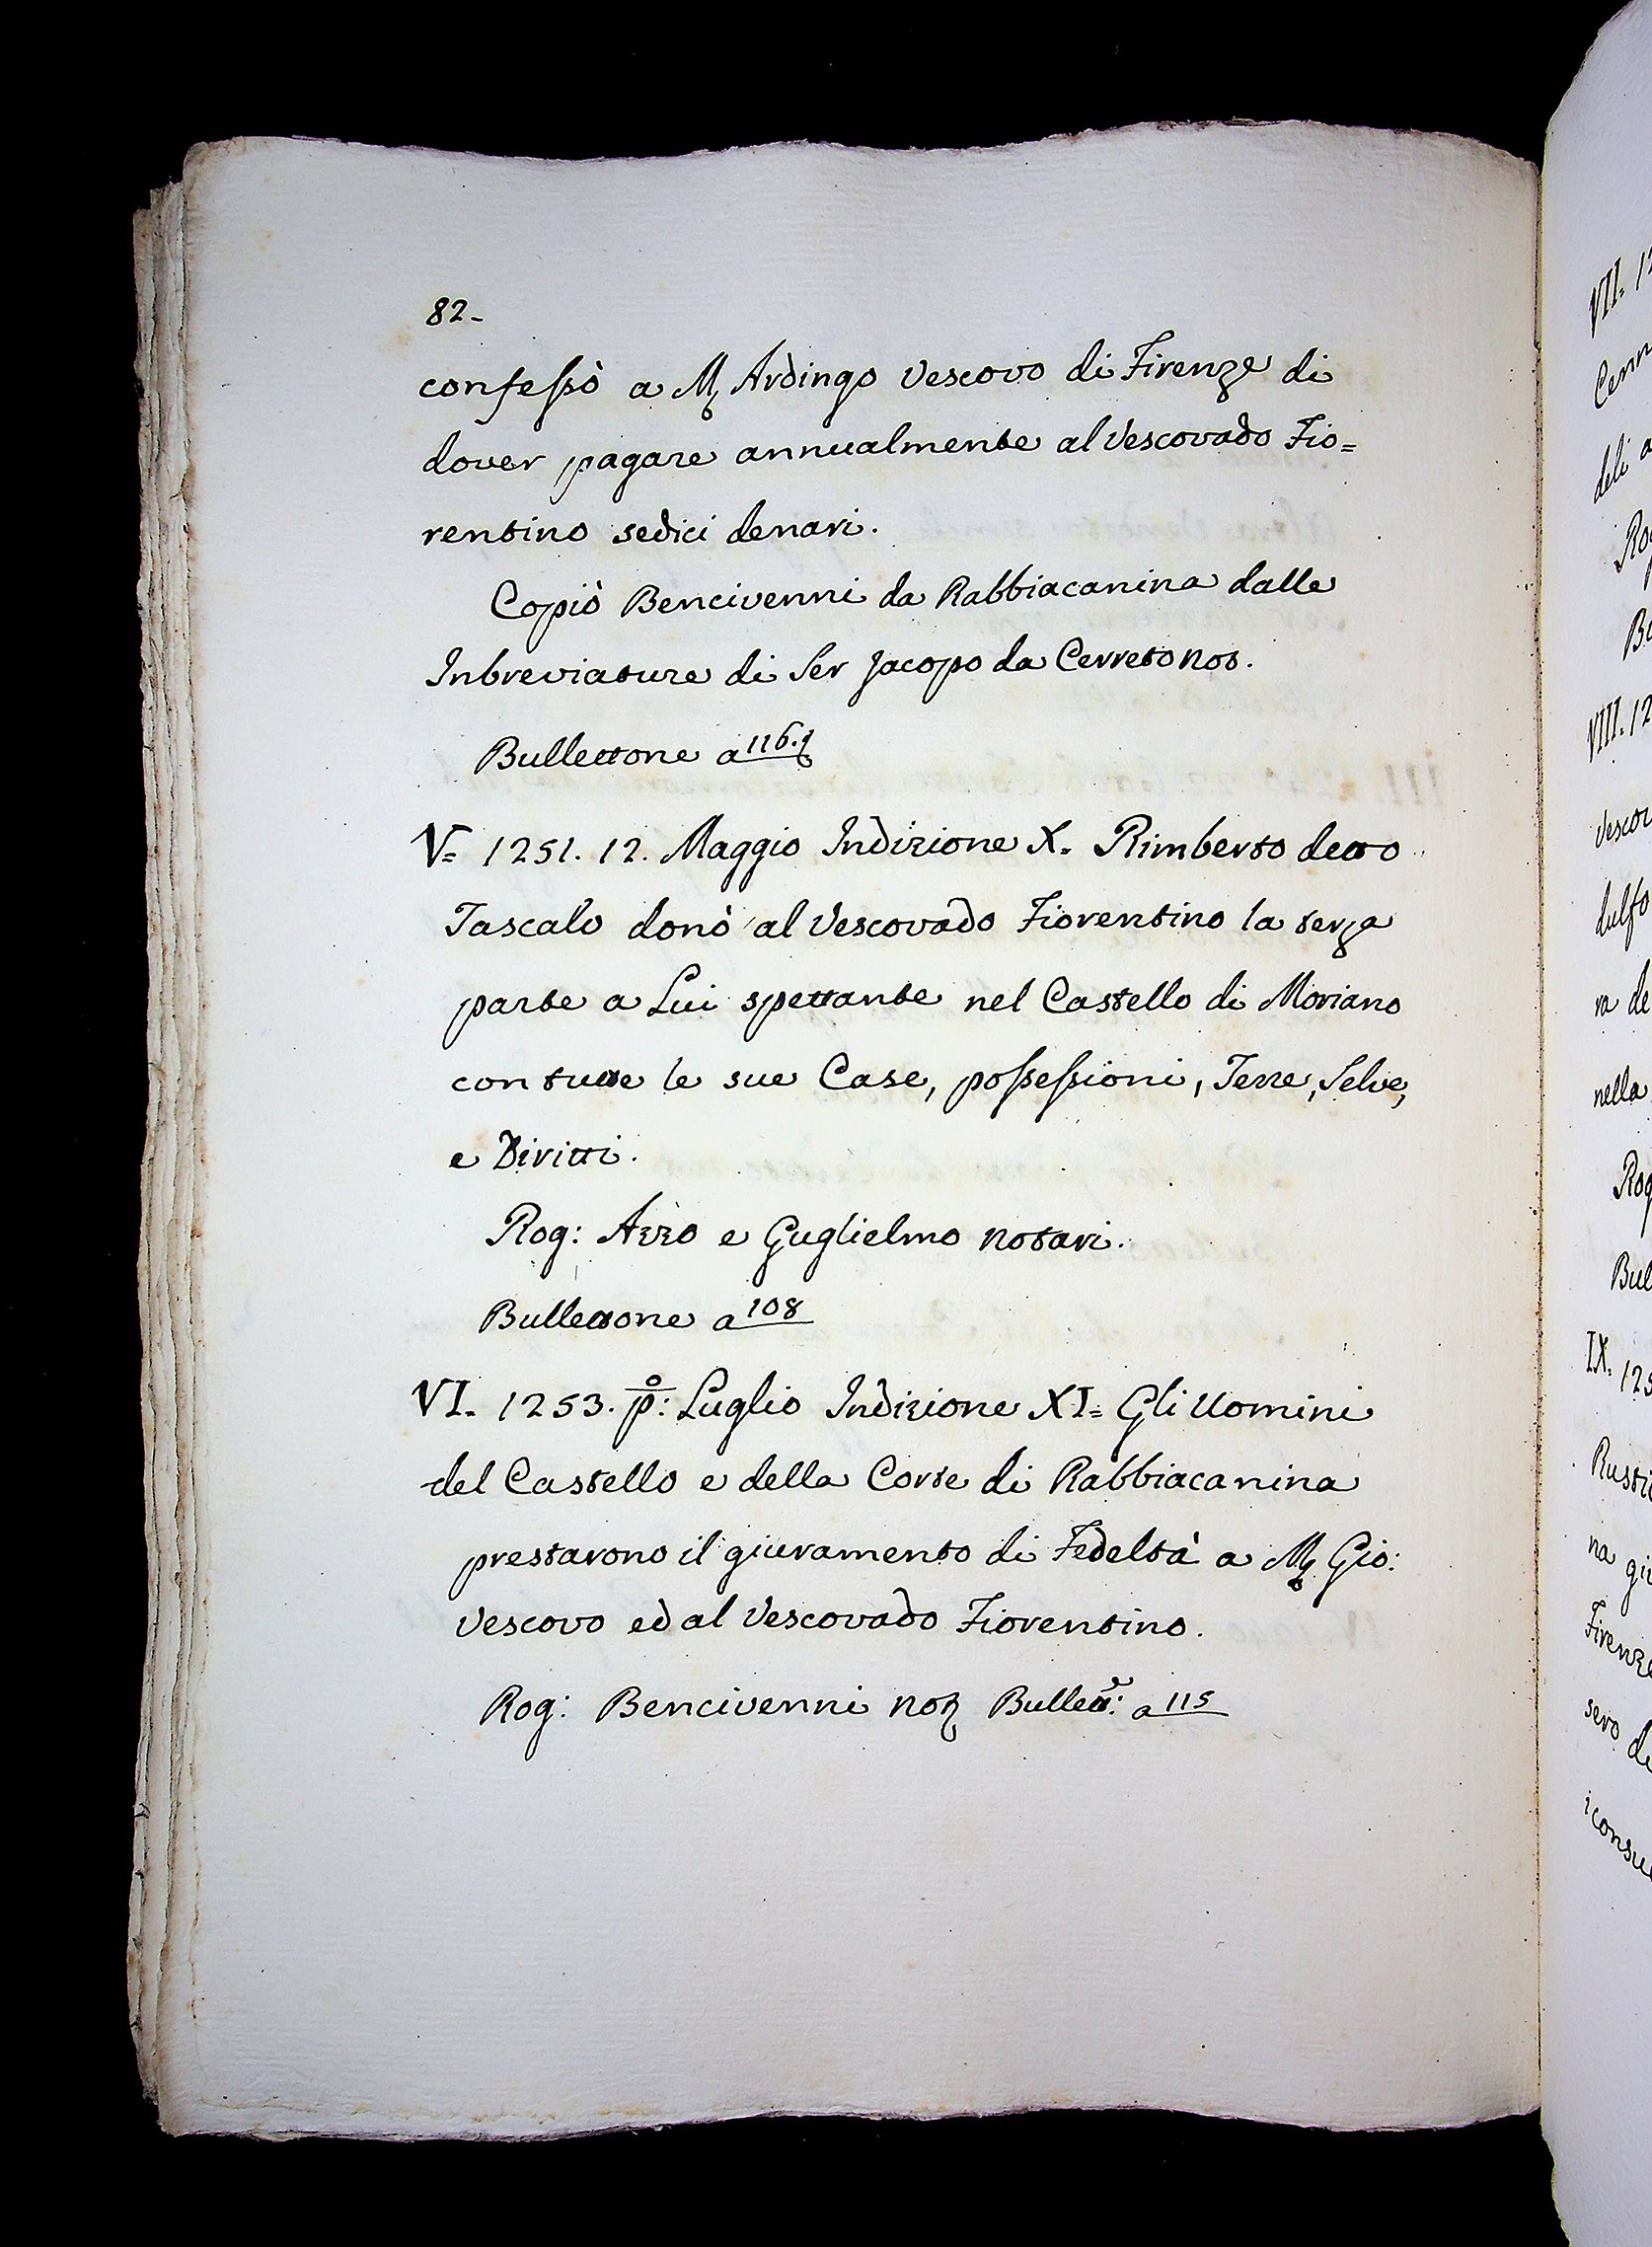 82-
confessò a M Ardingo Vescovo di Firenze di
dover pagare annualmente al Vescovado Fio=
rentino sedici denari.
Copiò Bencivenni da Rabbiacanina dalle
Inbreviature di Ser Jacopo da Cerreto not.
Bullettone a 116.
V= 1251. 12. Maggio Indizione X. Rimberto detto
Tascalo donò al Vescovado Fiorentino la terza
parte a Lui spettante nel Castello di Moriano
con tutte le sue Case, possessioni, Terre, Selve,
e Diritti.
Rog: Azzo e Guglielmo notari.
Bullettone a 108
VI. 1253. p:º Luglio Indizione XI= Gli Uomini
del Castello e della Corte di Rabbiacanina
prestarono il giuramento di Fedeltà a M Gio:
Vescovo ed al Vescovado Fiorentino.
Rog: Bencivenni not Bullett: a 115
VII. 12
Cenn
deli a
Ro
B
VIII. 12
Vescov
dulfo
ra de
nella
Rog
Bul
IX. 125
Rusti
na giu
Firenze
sero di
i consue